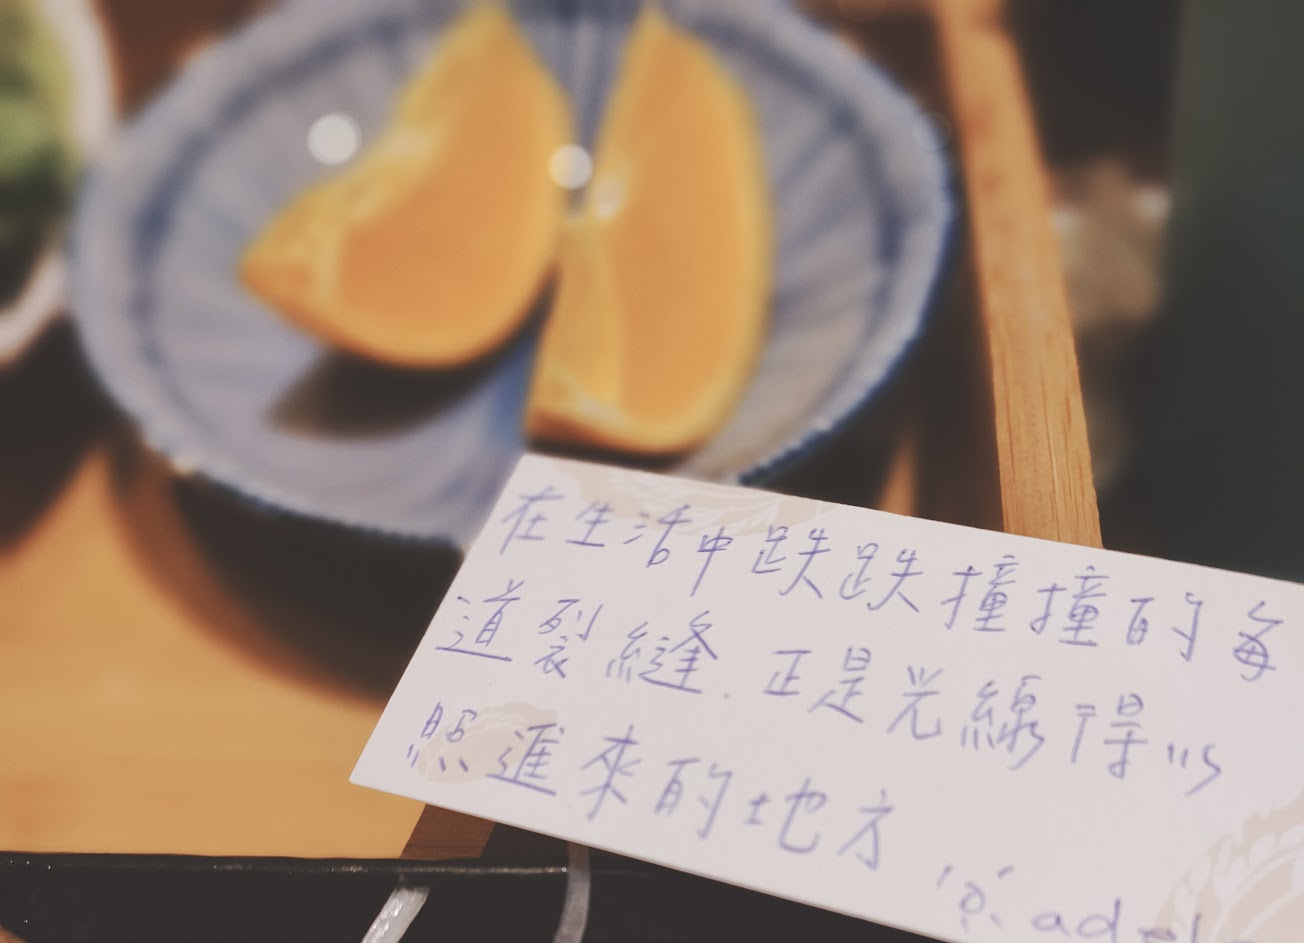 在生活中跌跌撞撞的每
道裂縫.正是光線得以
照進來的地方